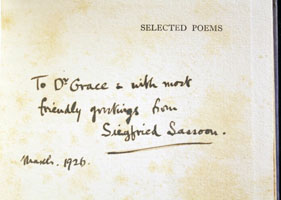 SELECTED POEMS
To Dr Grace & with most
friendly greetings from
Siegfried Sassoon.
March. 1926.